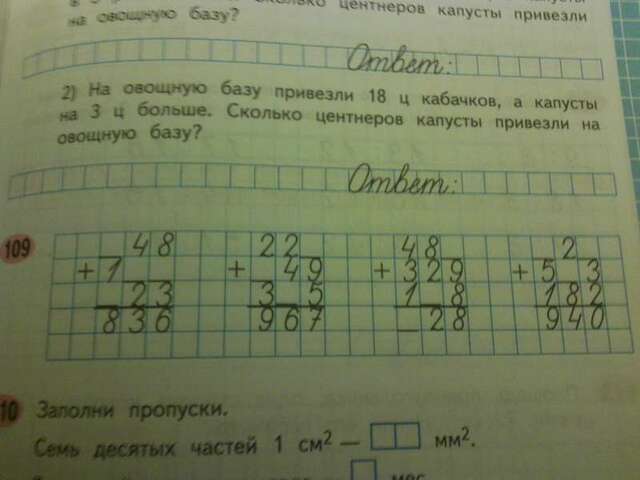 колько центнеров капусты привезли
на овощную базу?
Ответ:
2) На овощную базу привезли 18 ц кабачков, а капусты
на 3 ц больше. Сколько центнеров капусты привезли на
овощную базу?
Ответ:
109
48 22 48 2
+ 1 + 49 + 329 + 5 3
23 3 5 1 8 182
836 967 _28 940
10 Заполни пропуски.
Семь десятых частей 1 см² — мм².
мес